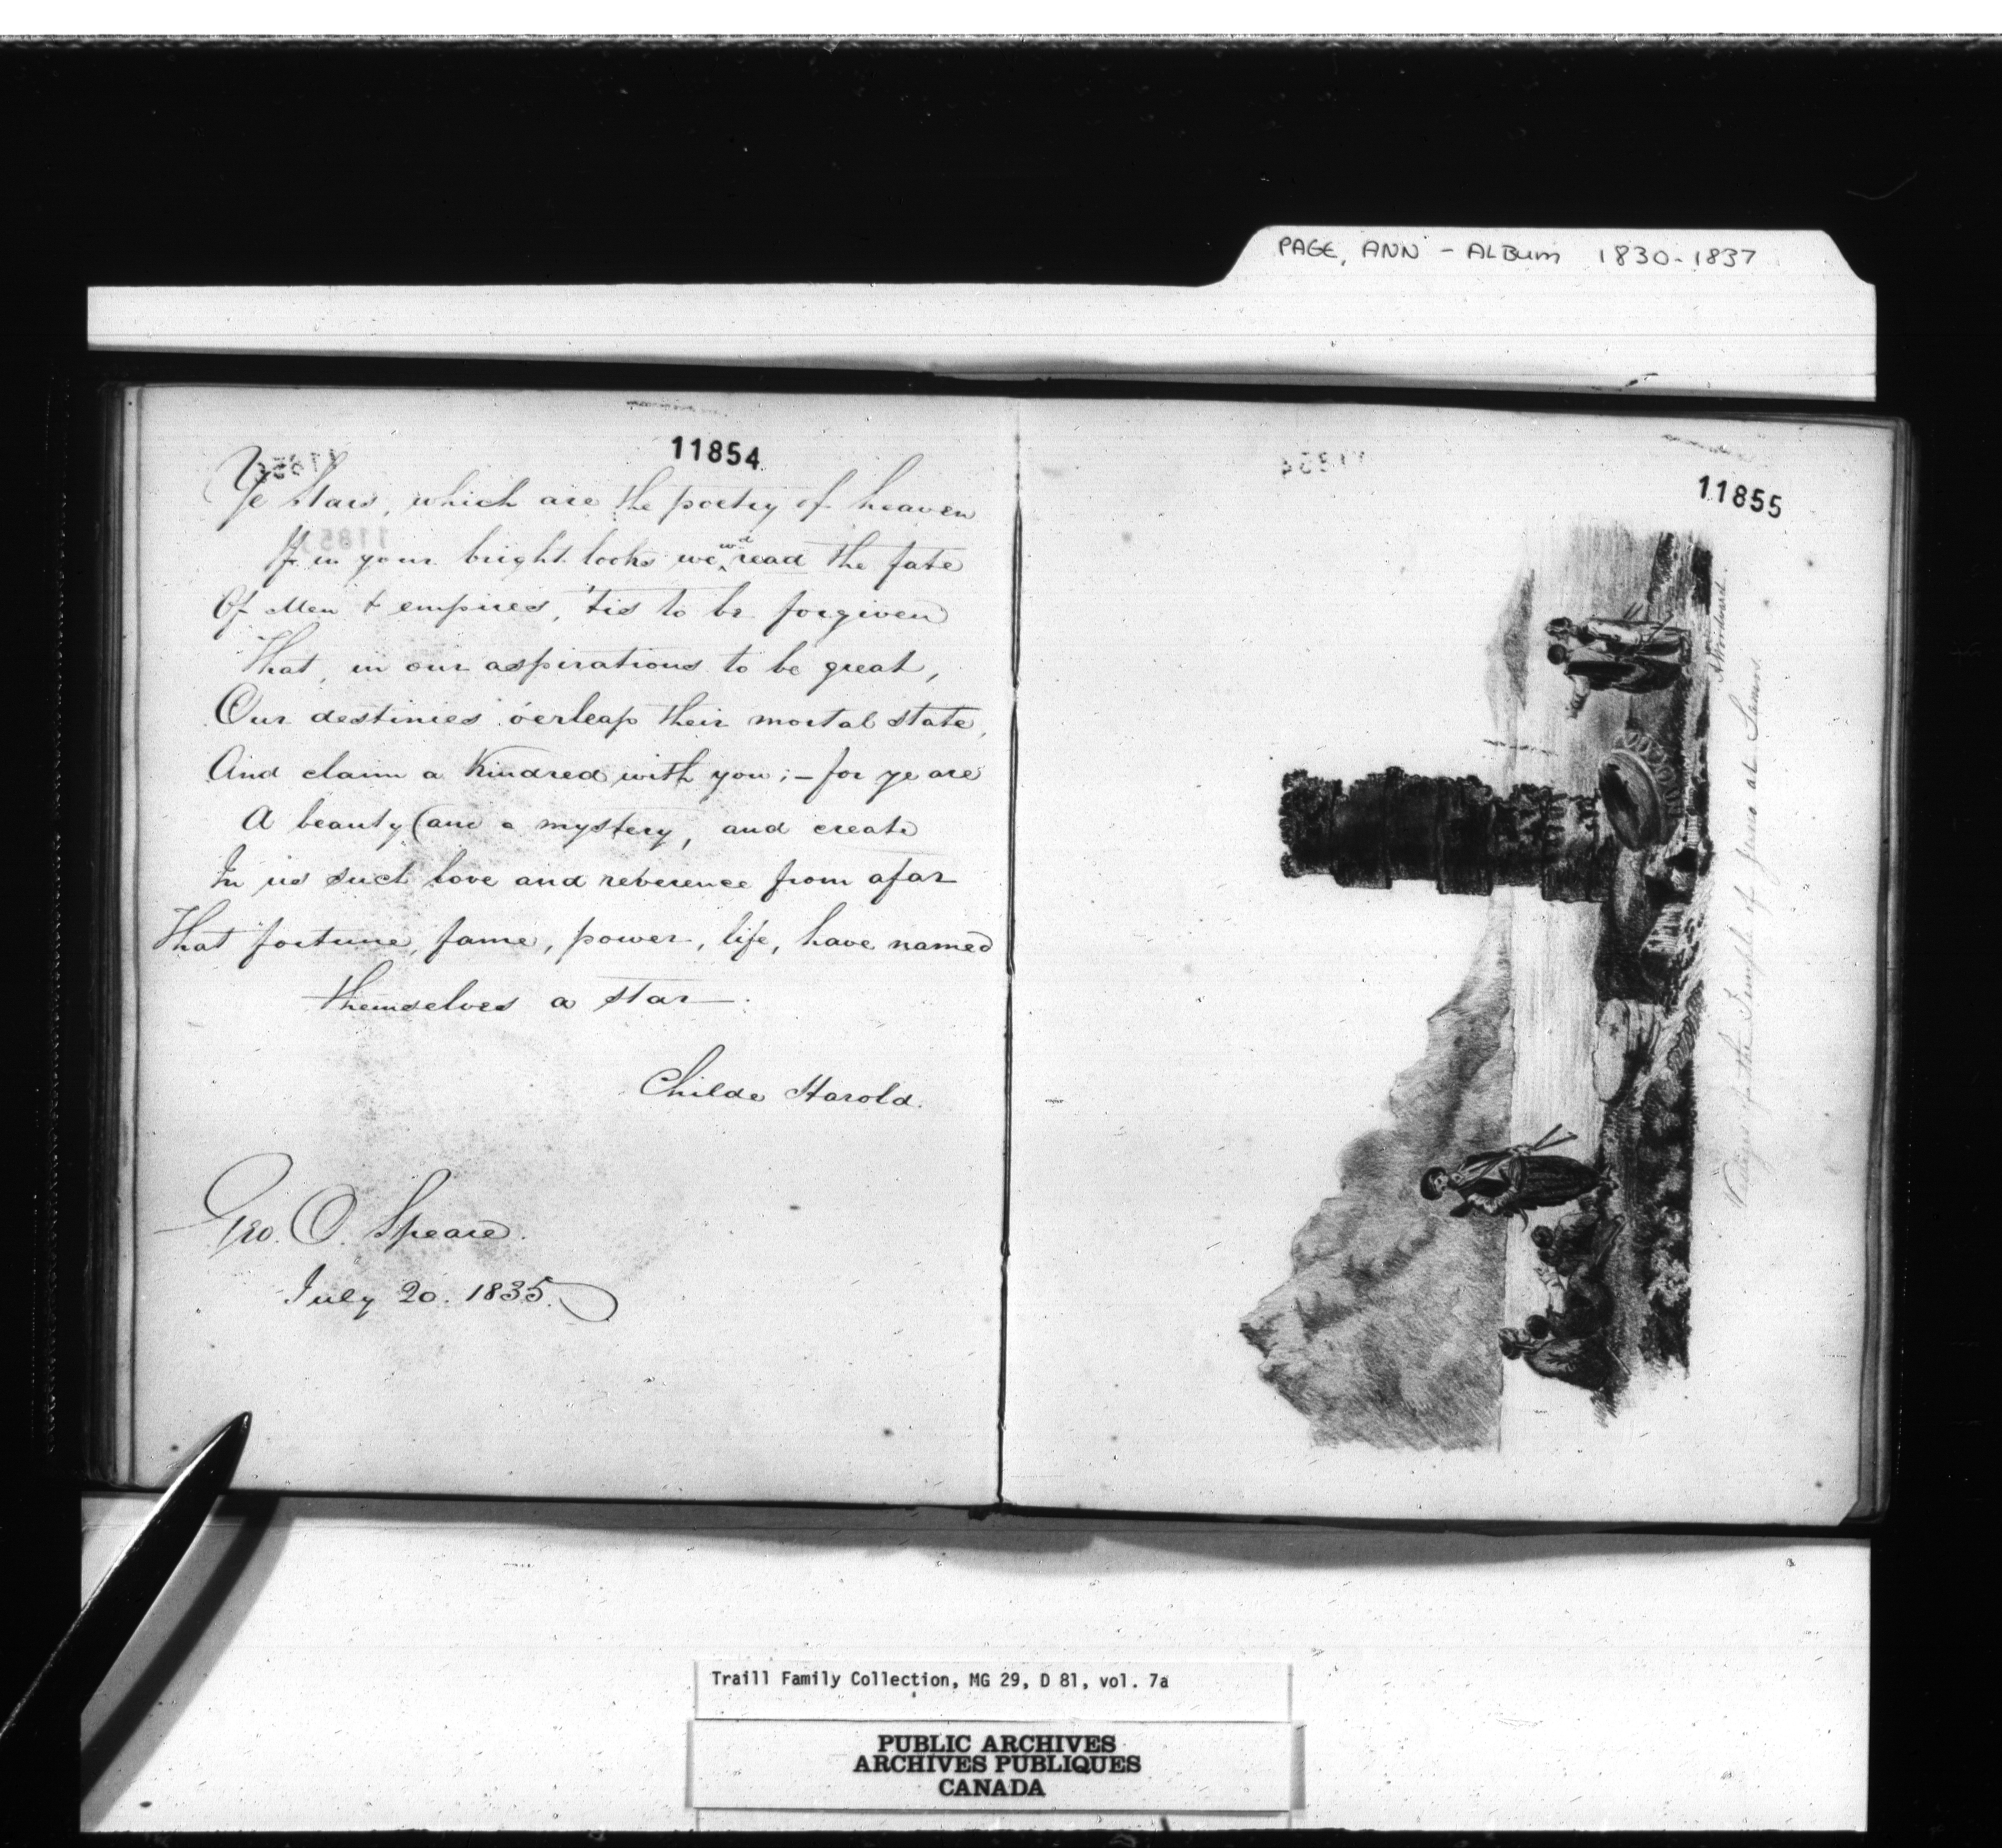 PAGE, ANN - ALBUM 1830-1837
11854
Ye Stars, which are the poetry of heaven
If in your bright looks we wd read the fate
Of Men & empires, 'tis to be forgiven
That, in our aspirations to be great,
Our destinies o'erleap their mortal state,
And claim a Kindred with you; - for ye are
A beauty (and a mystery, and create
In us such love and reverence from afar
That fortune, fame, power, life, have named
themselves a star.
Childe Harold.
Geo. O. Speare.
July 20. 1835.
11855
Vestiges of the Temple of Juno at Samos
Traill Family Collection, MG 29, D 81, vol. 7a
PUBLIC ARCHIVES
ARCHIVES PUBLIQUES
CANADA